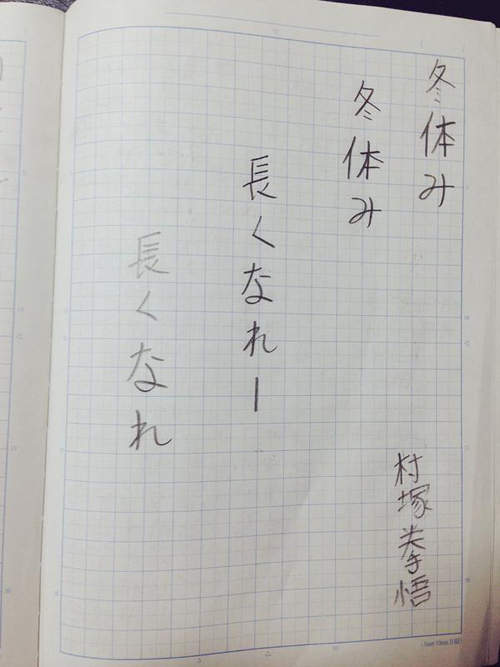 冬休み
村塚拳悟
冬休み
長くなれー
長くなれ